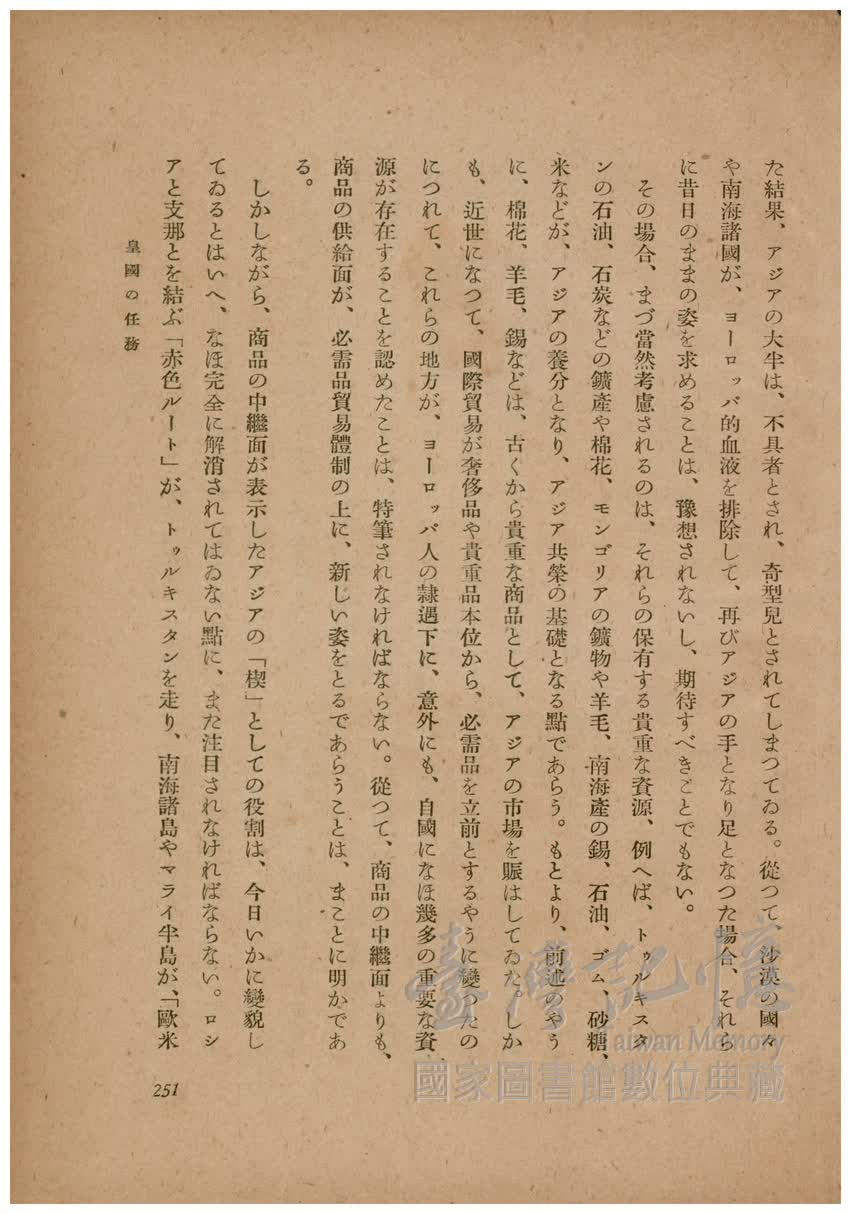 た結果、アジアの大半は、不具者とされ、奇型兒とされてしまつてゐる。從つて、沙漠の國々
や南海諸國が、ヨーロッパ的血液を排除して、再びアジアの手となり足となつた場合、それら
に昔日のままの姿を求めることは、豫想されないし、期待すべきことでもない。
その場合、まづ當然考慮されるのは、それらの保有する貴重な資源、例へば、トゥルキスタ
ンの石油、石炭などの鑛產や棉花、モンゴリアの鑛物や羊毛、南海產の錫、石油、ゴム、砂糖、
米などが、アジアの養分となり、アジア共榮の基礎となる點であらう。もとより、前述のやう
に、棉花、羊毛、錫などは、古くから貴重な商品として、アジアの市場を賑はしてゐた。しか
も、近世になつて、國際貿易が奢侈品や貴重品本位から、必需品を立前とするやうに變つたの
につれて、これらの地方が、ヨーロッパ人の隷遇下に、意外にも、自國になほ幾多の重要な資
源が存在することを認めたことは、特筆されなければならない。從つて、商品の中繼面よりも、
商品の供給面が、必需品貿易體制の上に、新しい姿をとるであらうことは、まことに明かであ
る。
しかしながら、商品の中繼面が表示したアジアの「楔」としての役割は、今日いかに變貌し
てゐるとはいへ、なほ完全に解消されてはゐない點に、また注目されなければならない。ロシ
アと支那とを結ぶ「赤色ルート」が、トゥルキスタンを走り、南海諸島やマライ半島が、「歐米
皇國の任務
251
臺灣記憶
Taiwan Memory
國家圖書館數位典藏